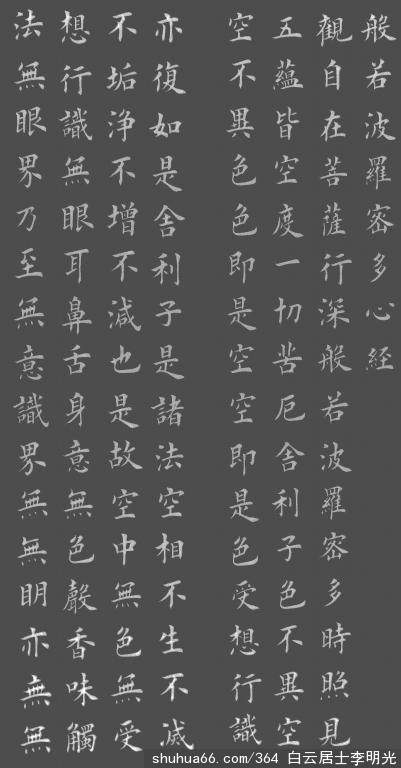 般若波羅密多心経
觀自在菩薩行深般若波羅密多時照見
五蘊皆空度一切苦厄舍利子色不異空
空不異色色即是空空即是色受想行識
亦復如是舍利子是諸法空相不生不滅
不垢浄不增不減也是故空中無色無受
想行識無眼耳鼻舌身意無色聲香味觸
法無眼界乃至無意識界無無明亦無無
shuhua66.com/364 白云居士李明光